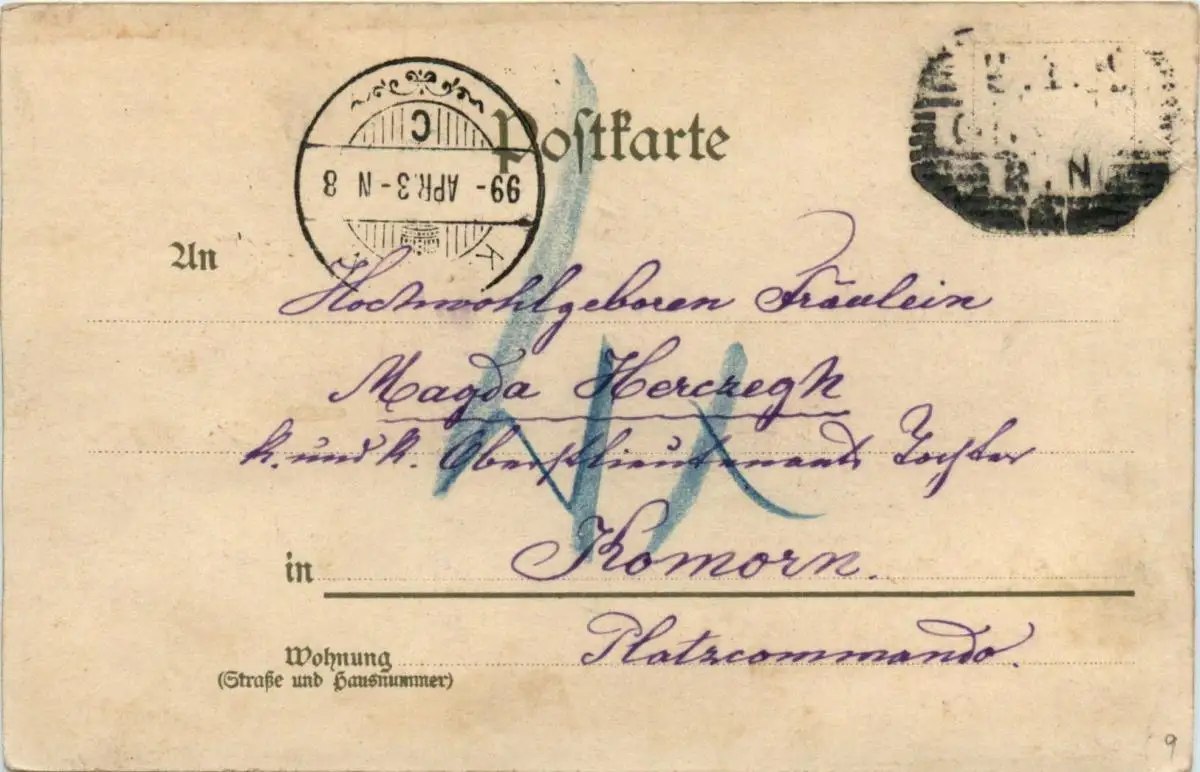 Postkarte
C
99 - APR. 3 - N 8
K
An
Hochwohlgeboren Fräulein
Magda Herczegh
k. und k. Oberstlieutenants Tochter
in Komorn.
Wohnung Platzcommando.
(Straße und Hausnummer)
9